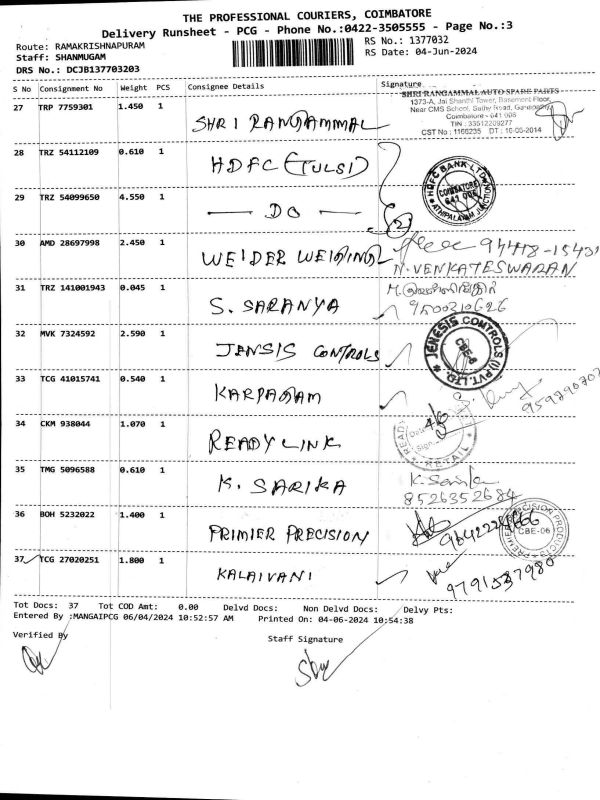 THE PROFESSIONAL COURIERS, COIMBATORE
Delivery Runsheet - PCG - Phone No.:0422-3505555 - Page No.:3
Route: RAMAKRISHNAPURAM
RS No.: 1377032
Staff: SHANMUGAM
RS Date: 04-Jun-2024
DRS No.: DCJB137703203
S No Consignment No Weight PCS Consignee Details Signature
27 TRP 7759301 1.450 1 SHRI RANGAMMAL
SHRI RANGAMMAL AUTO SPARE PARTS
1373-A, Jai Shanthi Tower, Basement Floor,
Near CMS School, Sathy Road, Ganapathy,
Coimbatore - 641 006
TIN : 33512209277
CST No : 1166235 DT : 16-05-2014
28 TRZ 54112109 0.610 1 HDFC (TULSI)
HDFC BANK LTD.
COIMBATORE
641 006
ATHIPALAYAM JUNCTION
29 TRZ 54099650 4.550 1 DO
2
30 AMD 28697998 2.450 1 WEIDER WEIGING
N. VENKATESWARAN
31 TRZ 141001943 0.045 1 S. SARANYA
32 MVK 7324592 2.590 1 JENSIS CONTROLS
JENESIS CONTROLS (I) PVT. LTD.
CBE-6
33 TCG 41015741 0.540 1 KARPAGAM
34 CKM 938044 1.070 1 READY LINK
READY
RETAIL
35 TMG 5096588 0.610 1 K. SARIKA
8526352684
36 BOH 5232022 1.400 1 PRIMIER PRECISION
PREMIER PRECISION PRODUCTS
CBE-06
37 TCG 27020251 1.800 1 KALAIVANI
9791537980
Tot Docs: 37 Tot COD Amt: 0.00 Delvd Docs: Non Delvd Docs: Delvy Pts:
Entered By :MANGAIPCG 06/04/2024 10:52:57 AM Printed On: 04-06-2024 10:54:38
Verified By
Staff Signature